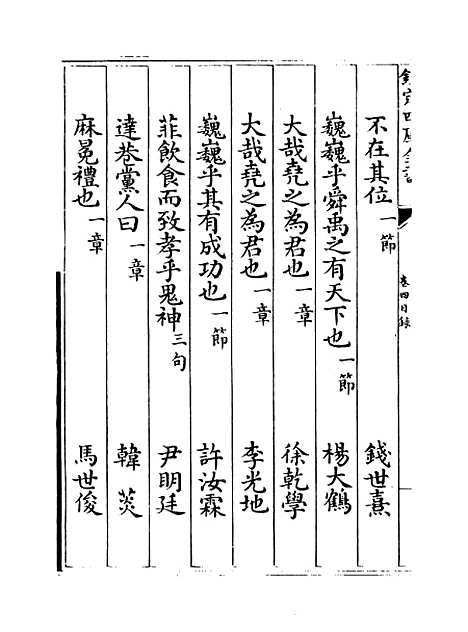 欽定四庫全書
卷四目錄
不在其位一節 錢世熹
巍巍乎舜禹之有天下也一節 楊大鶴
大哉堯之為君也一章 徐乾學
大哉堯之為君也一章 李光地
巍巍乎其有成功也一節 許汝霖
菲飲食而致孝乎鬼神三句 尹明廷
達巷黨人曰一章 韓菼
麻冕禮也一章 馬世俊